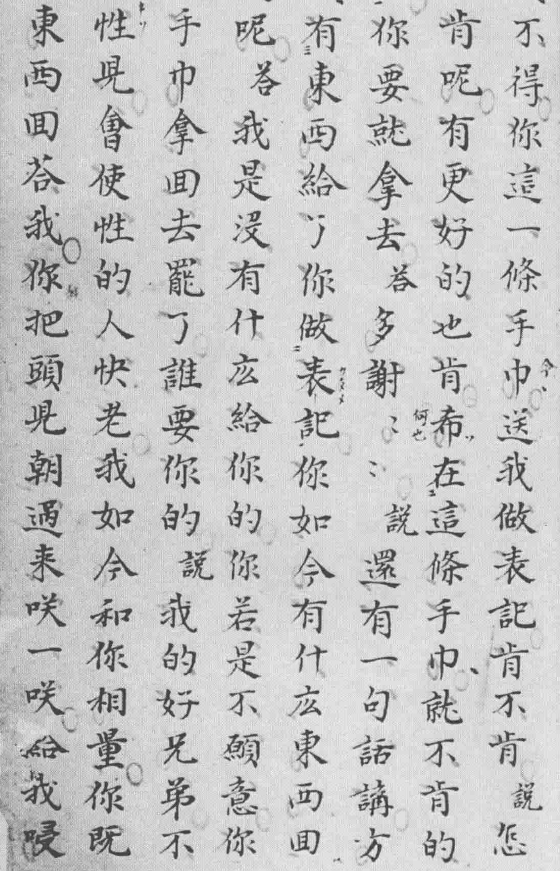 不得你這一條手巾送我做表記肯不肯 説 怎
肯呢有更好的也肯希在這條手巾就不肯的
你要就拿去 荅 多謝〻〻 説 還有一句話講方
有東西給了你做表記你如今有什庅東西囬
呢 荅 我是没有什庅給你的你若是不願意你
手巾拿囬去罷了誰要你的 説 我的好兄弟不
性見會使性的人快老我如今和你相量你既
東西囬荅我你把頭兒朝過来咲一咲給我